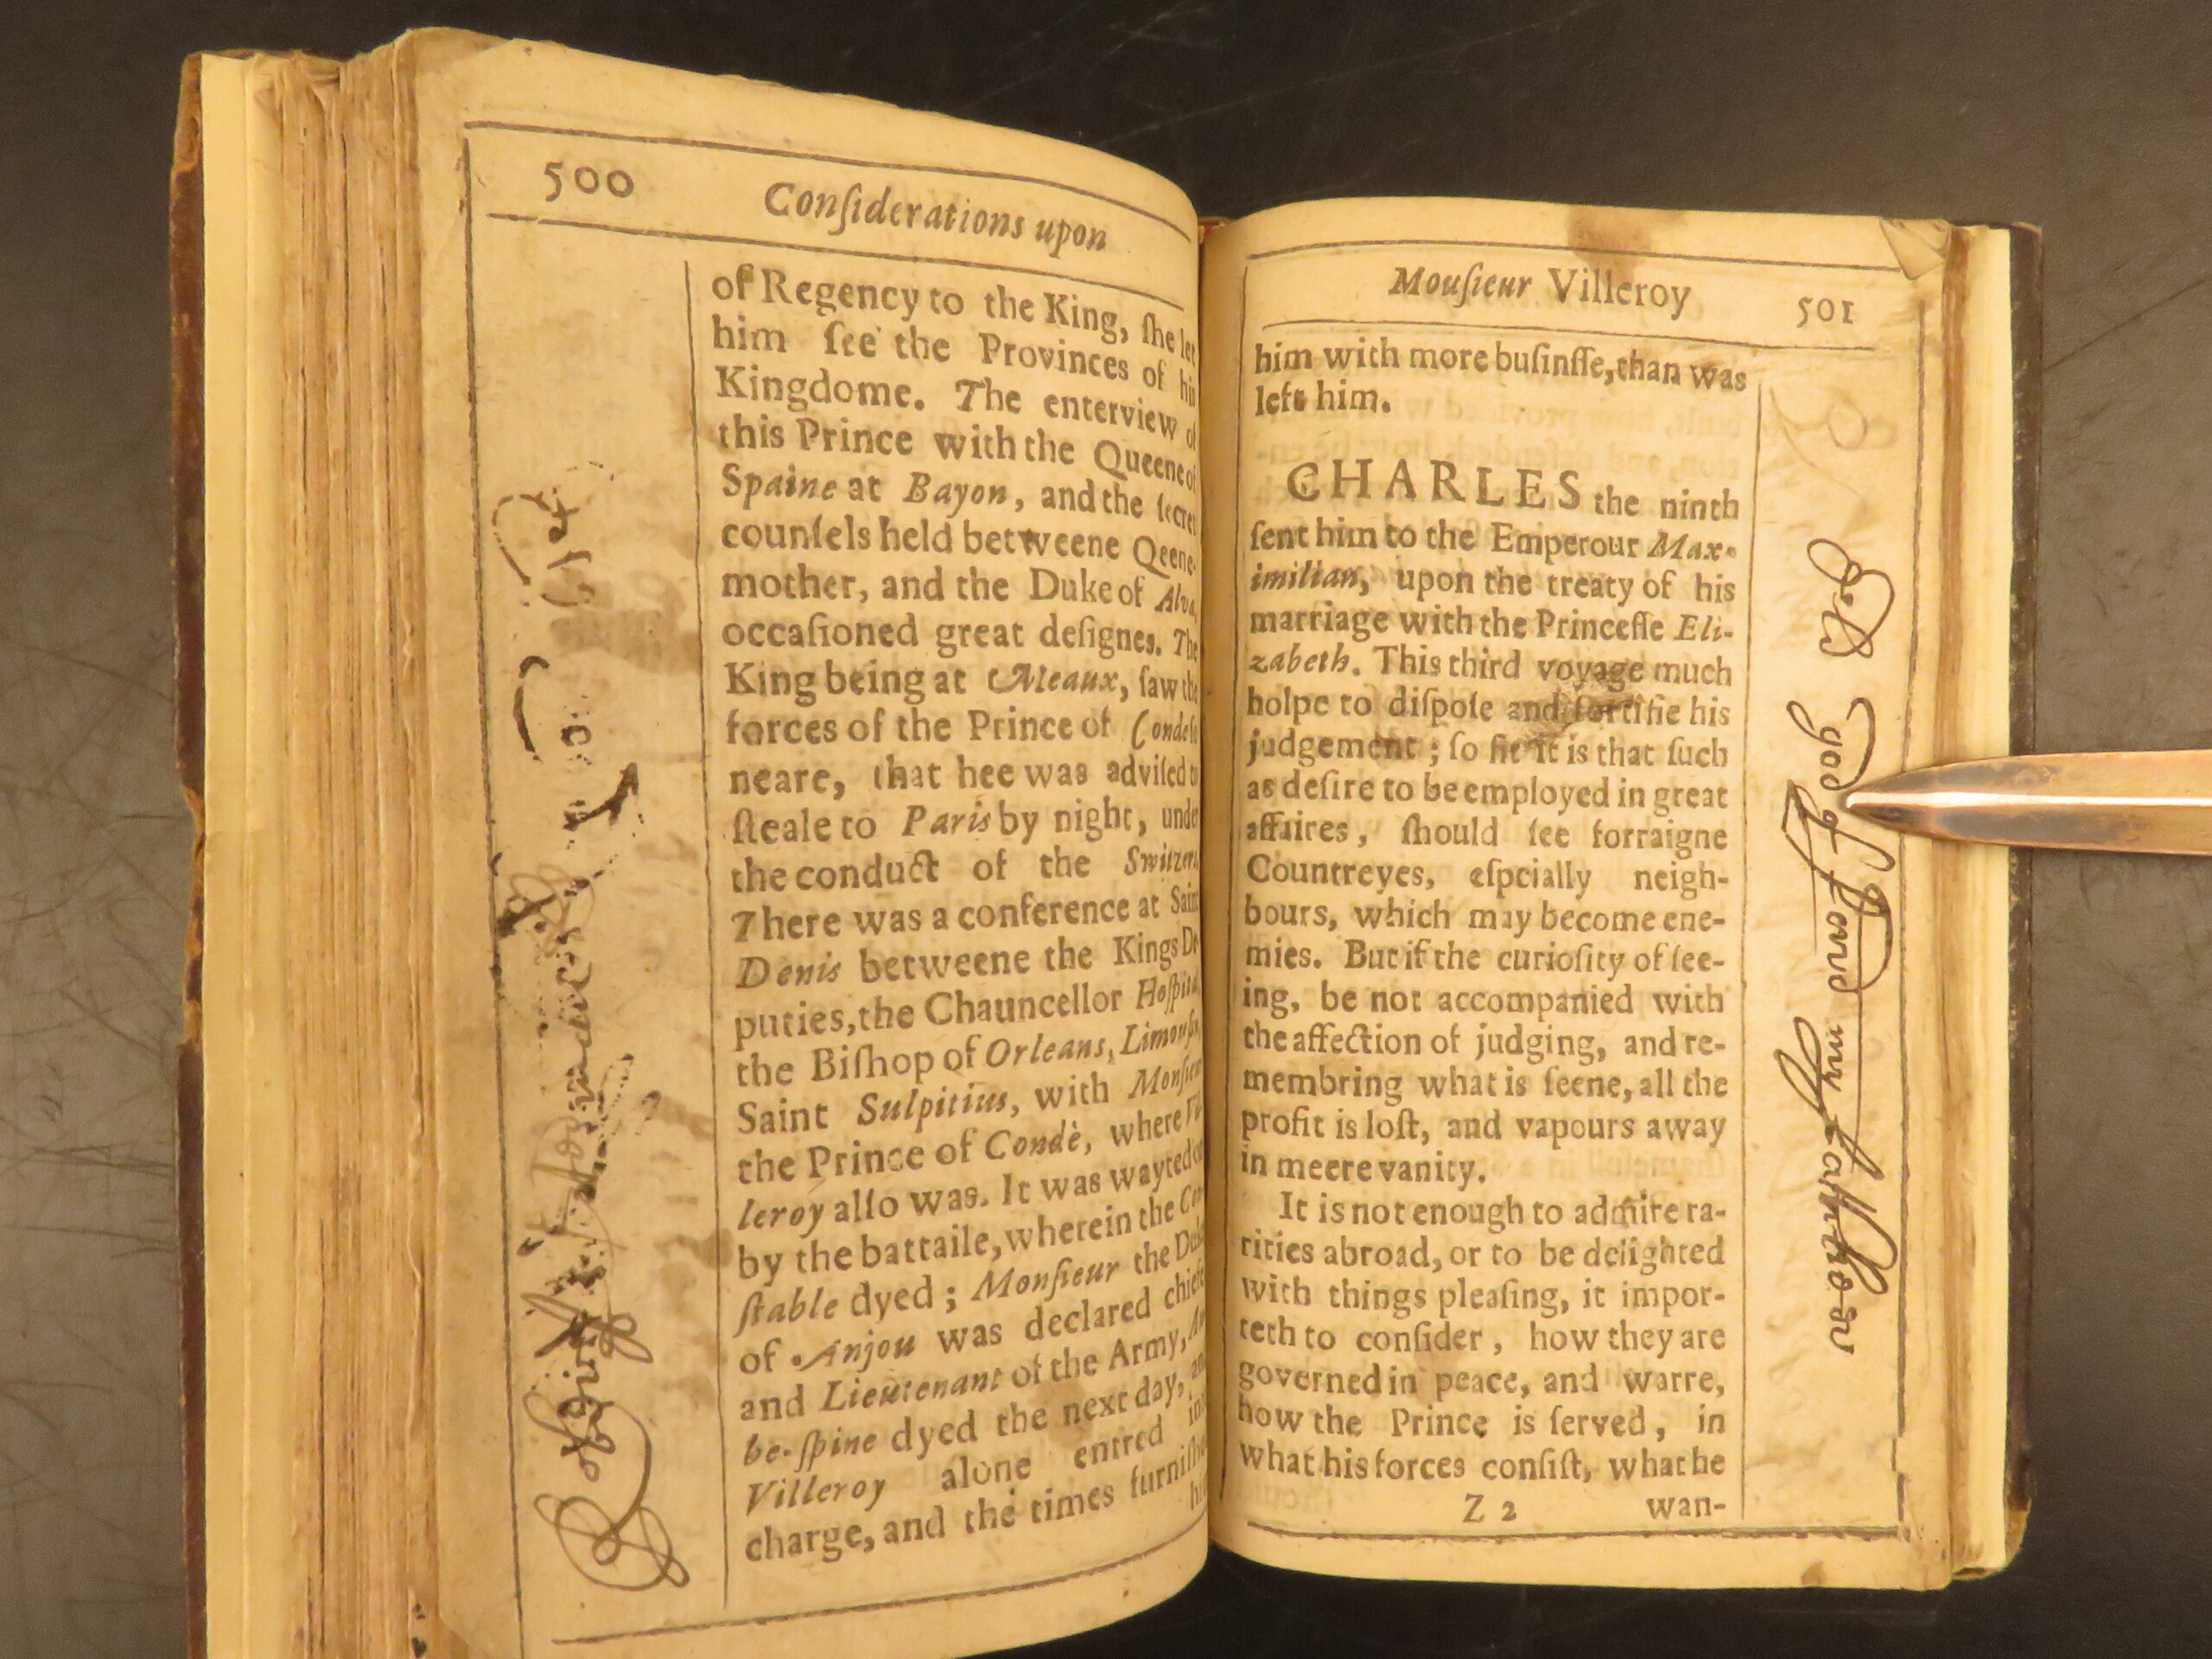 500 Conſiderations upon
of Regency to the King, ſhe let
him ſee the Provinces of his
Kingdome. The enterview of
this Prince with the Queene of
Spaine at Bayon, and the ſecret
counſels held betweene Qeene-
mother, and the Duke of Alva,
occaſioned great deſignes. The
King being at Meaux, ſaw the
forces of the Prince of Conde ſo
neare, that hee was adviſed to
ſteale to Paris by night, under
the conduct of the Switzers
There was a conference at Saint
Denis betweene the Kings De
puties, the Chauncellor Hoſpital,
the Biſhop of Orleans,
Saint Sulpitius, with Monſieur
the Prince of Condè, where Vil
leroy alſo was. It was wayted on
by the battaile, wherein the Con
ſtable dyed; Monſieur the Duke
of Anjou was declared chiefe
and Lieutenant of the Army,
be-ſpine dyed the next day, and
Villeroy alone entred into
charge, and the times furniſhed
him
Mouſieur Villeroy 501
him with more buſinſſe, than was
left him.
CHARLES the ninth
ſent him to the Emperour Max-
imilian, upon the treaty of his
marriage with the Princeſſe Eli-
zabeth. This third voyage much
holpe to diſpoſe and fortifie his
judgement; ſo fit it is that ſuch
as deſire to be employed in great
affaires, ſhould ſee forraigne
Countreyes, eſpcially neigh-
bours, which may become ene-
mies. But if the curioſity of ſee-
ing, be not accompanied with
the affection of judging, and re-
membring what is ſeene, all the
profit is loſt, and vapours away
in meere vanity.
It is not enough to admire ra-
rities abroad, or to be delighted
with things pleaſing, it impor-
teth to conſider, how they are
governed in peace, and warre,
how the Prince is ſerved, in
what his forces conſiſt, what he
Z 2 wan-
god Lord my